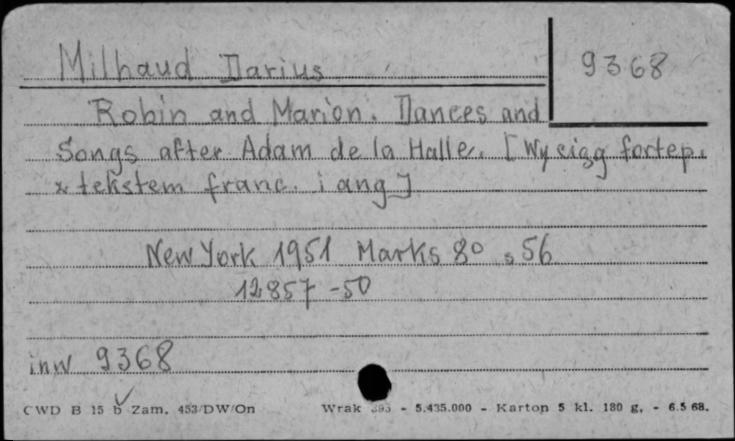 Milhaud Darius
9368
Robin and Marion. Dances and
Songs after Adam de la Halle. [Wyciąg fortep.
z tekstem franc. i ang]
New York 1951 Marks 8° s 56
12857 -50
inw 9368
CWD B 15 b Zam. 453/DW/On Wrak - 5.435.000 - Karton 5 kl. 180 g. - 6.5 68.